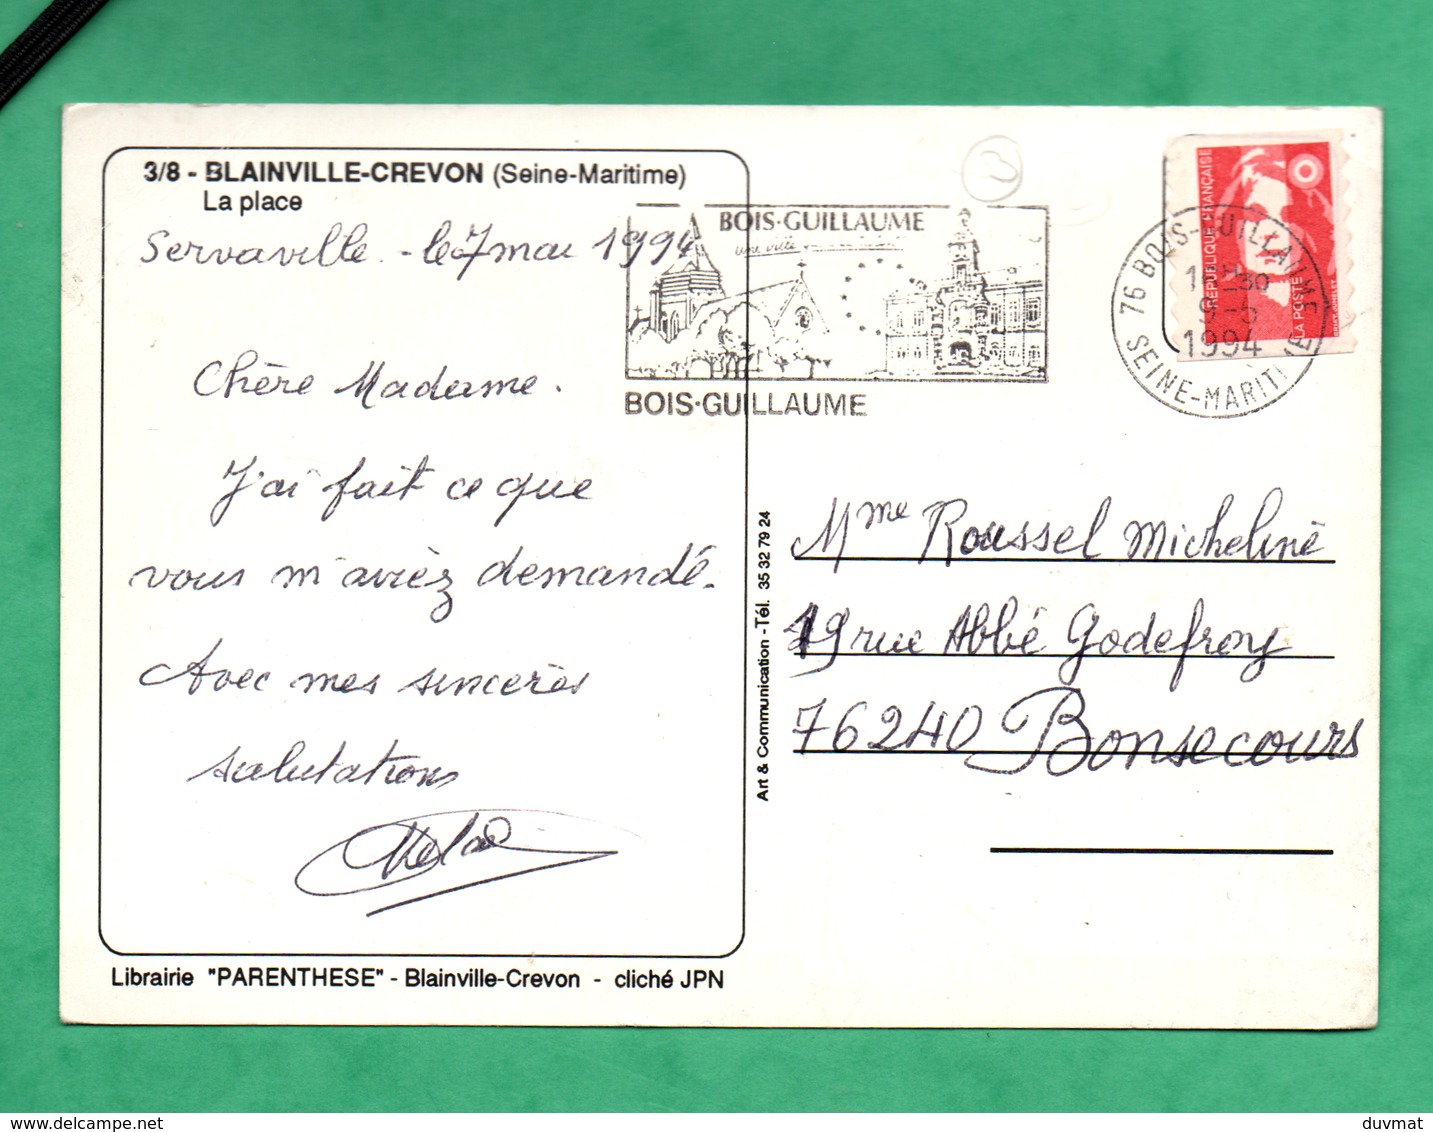 3/8 - BLAINVILLE-CREVON (Seine-Maritime)
La place
Servaville - le 7 mai 1994
Chère Madame.
J'ai fait ce que
vous m'aviez demandé.
Avec mes sincères
salutations
Librairie "PARENTHESE" - Blainville-Crevon - cliché JPN
BOIS-GUILLAUME
une ville
BOIS-GUILLAUME
76 BOIS-GUILLAUME
9-5
1994
SEINE-MARITIME
RÉPUBLIQUE FRANÇAISE
LA POSTE
Art & Communication - Tél. 35 32 79 24
Mme Roussel Micheline
19 rue Abbé Godefroy
76240 Bonsecours
delcampe.net
duvmat